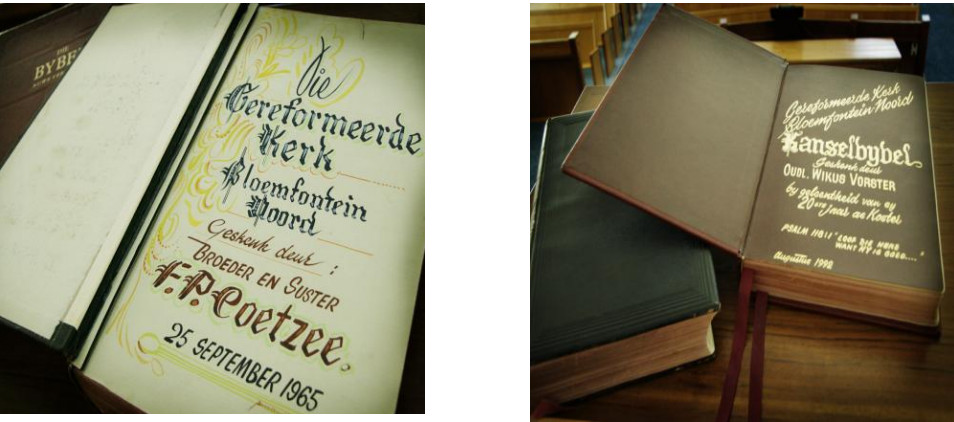 DIE
BYBEL
Die
Gereformeerde
Kerk
Bloemfontein
Noord
Geskenk deur :
BROEDER EN SUSTER
F.P. Coetzee.
25 SEPTEMBER 1965
Gereformeerde Kerk
Bloemfontein Noord
Kanselbybel
Geskenk deur
OUDL. WIKUS VORSTER
by geleentheid van sy
20ste jaar as Koster
PSALM 118:1 "LOOF DIE HERE
WANT HY IS GOED...."
Augustus 1992